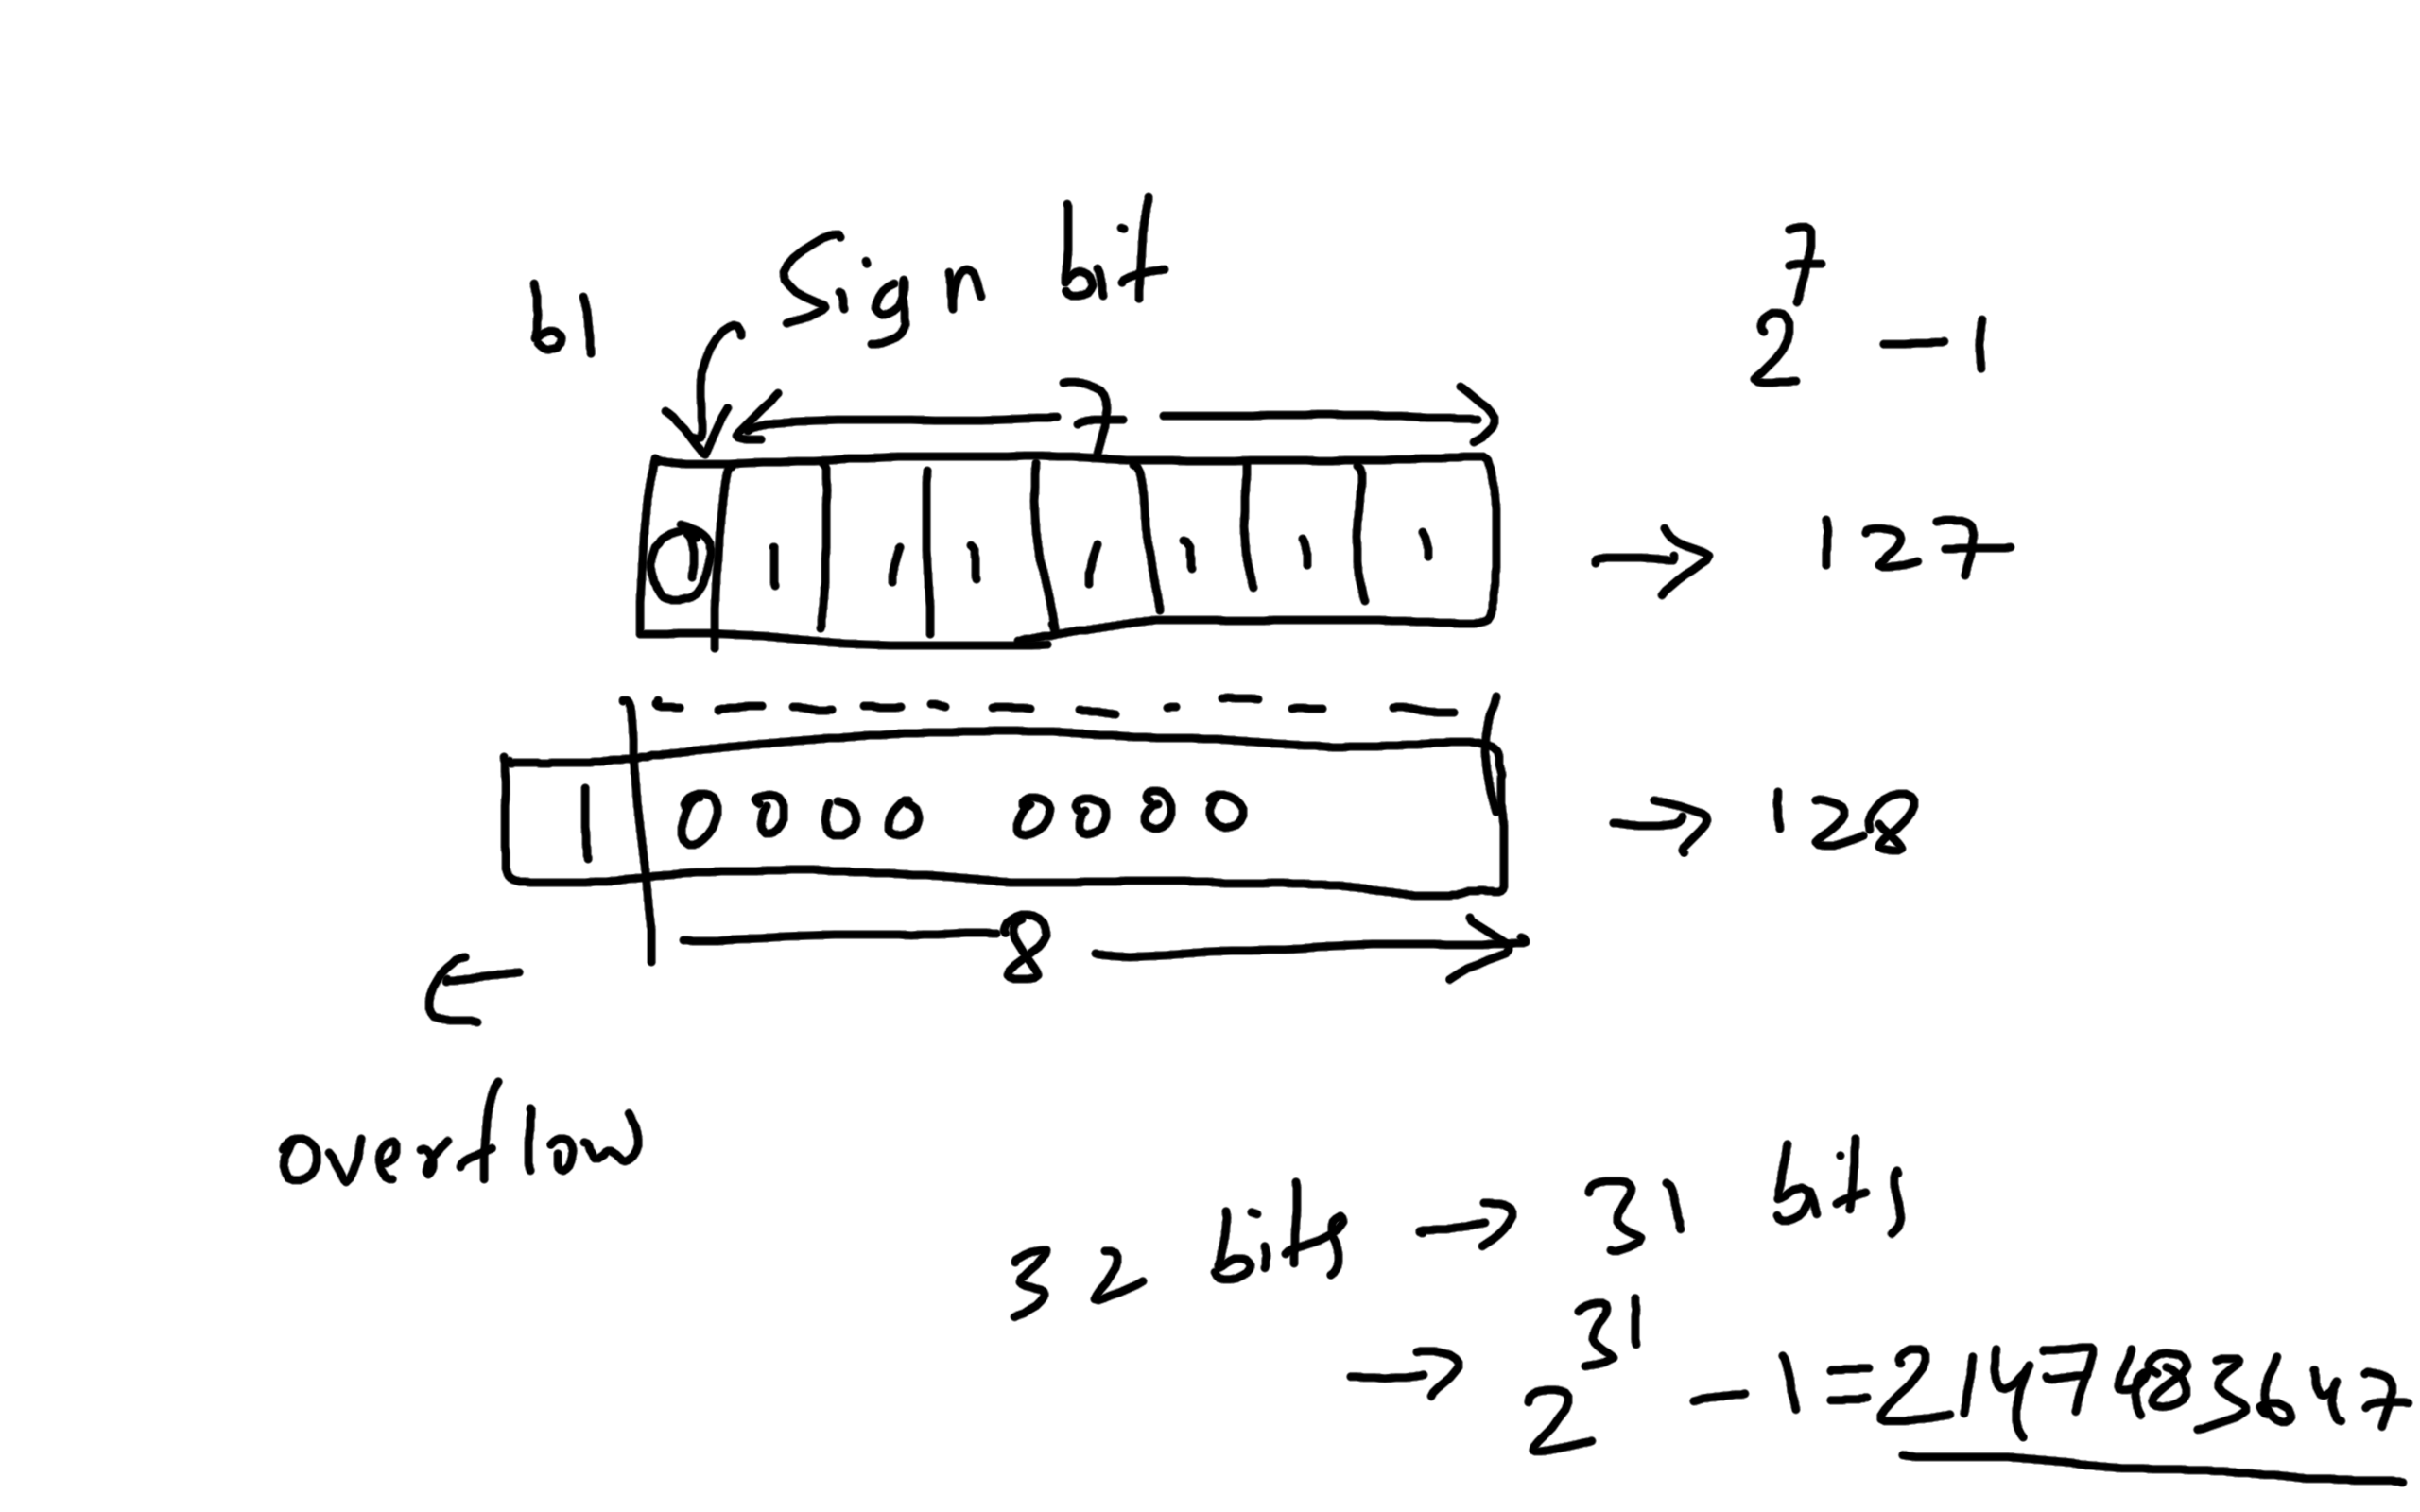 b1 Sign bit
7
2⁷ - 1
0 1 1 1 1 1 1 1 → 127
1 0000 0000 → 128
8
overflow
32 bits → 31 bits
→ 2³¹ - 1 = 2147483647